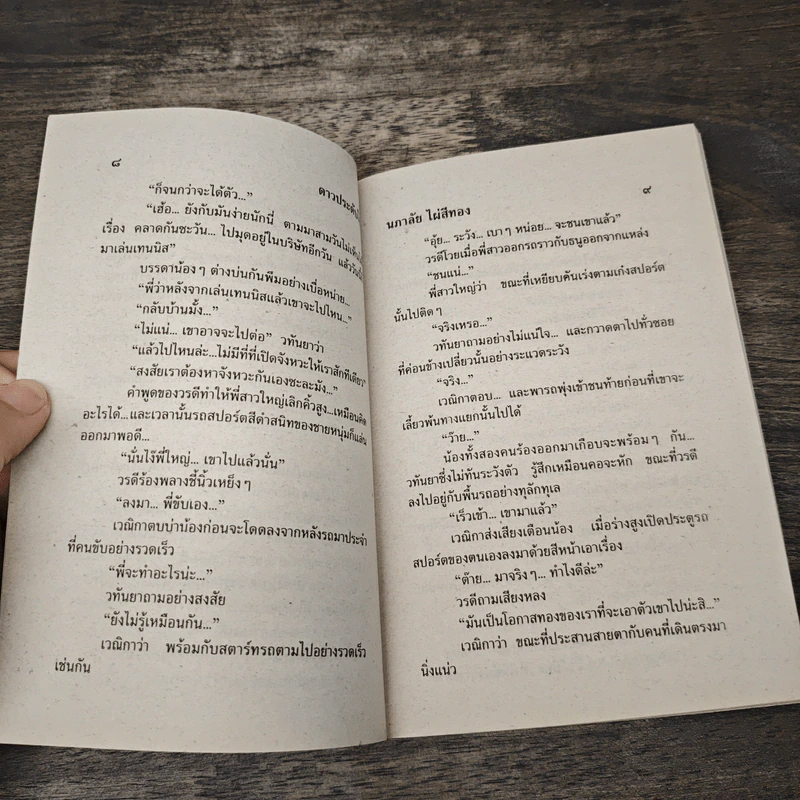 ๘
ดาวประดับ
“ก็จนกว่าจะได้ตัว...”
“เฮ้อ... ยังกับมันง่ายนักนี่ ตามมาสามวันไม่เห็น
เรื่อง คลาดกันซะวัน... ไปมุดอยู่ในบริษัทอีกวัน แล้ววันนี้
มาเล่นเทนนิส”
บรรดาน้องๆ ต่างบ่นกันพึมอย่างเบื่อหน่าย...
“พี่ว่าหลังจากเล่นเทนนิสแล้วเขาจะไปไหน...”
“กลับบ้านมั้ง...”
“ไม่แน่... เขาอาจจะไปต่อ” วทันยาว่า
“แล้วไปไหนล่ะ...ไม่มีที่ที่เปิดจังหวะให้เราสักทีเดียว”
“สงสัยเราต้องหาจังหวะกันเองซะละมัง...”
คำพูดของวรดีทำให้พี่สาวใหญ่เลิกคิ้วสูง...เหมือนคิด
อะไรได้...และเวลานั้นรถสปอร์ตสีดำสนิทของชายหนุ่มก็แล่น
ออกมาพอดี...
“นั่นไงพี่ใหญ่... เขาไปแล้วนั่น”
วรดีร้องพลางชี้นิ้วเหย็งๆ
“ลงมา... พี่ขับเอง...”
เวณิกาตบบ่าน้องก่อนจะโดดลงจากหลังรถมาประจำ
ที่คนขับอย่างรวดเร็ว
“พี่จะทำอะไรน่ะ...”
วทันยาถามอย่างสงสัย
“ยังไม่รู้เหมือนกัน...”
เวณิกาว่า พร้อมกับสตาร์ทรถตามไปอย่างรวดเร็ว
เช่นกัน
๙
นภาลัย ไผ่สีทอง
“อุ้ย... ระวัง... เบาๆ หน่อย... จะชนเขาแล้ว”
วรดีโวยเมื่อพี่สาวออกรถราวกับธนูออกจากแหล่ง
“ชนแน่...”
พี่สาวใหญ่ว่า ขณะที่เหยียบคันเร่งตามเก๋งสปอร์ต
นั้นไปติดๆ
“จริงเหรอ...”
วทันยาถามอย่างไม่แน่ใจ... และกวาดตาไปทั่วซอย
ที่ค่อนข้างเปลี่ยวนั้นอย่างระแวดระวัง
“จริง...”
เวณิกาตอบ... และพารถพุ่งเข้าชนท้ายก่อนที่เขาจะ
เลี้ยวพ้นทางแยกนั้นไปได้
“ว้าย...”
น้องทั้งสองคนร้องออกมาเกือบจะพร้อมๆ กัน...
วทันยาซึ่งไม่ทันระวังตัว รู้สึกเหมือนคอจะหัก ขณะที่วรดี
ลงไปอยู่กับพื้นรถอย่างทุลักทุเล
“เร็วเข้า... เขามาแล้ว”
เวณิกาส่งเสียงเตือนน้อง เมื่อร่างสูงเปิดประตูรถ
สปอร์ตของตนเองลงมาด้วยสีหน้าเอาเรื่อง
“ต๊าย... มาจริงๆ... ทำไงดีล่ะ”
วรดีถามเสียงหลง
“มันเป็นโอกาสทองของเราที่จะเอาตัวเขาไปน่ะสิ...”
เวณิกาว่า ขณะที่ประสานสายตากับคนที่เดินตรงมา
นิ่งแน่ว